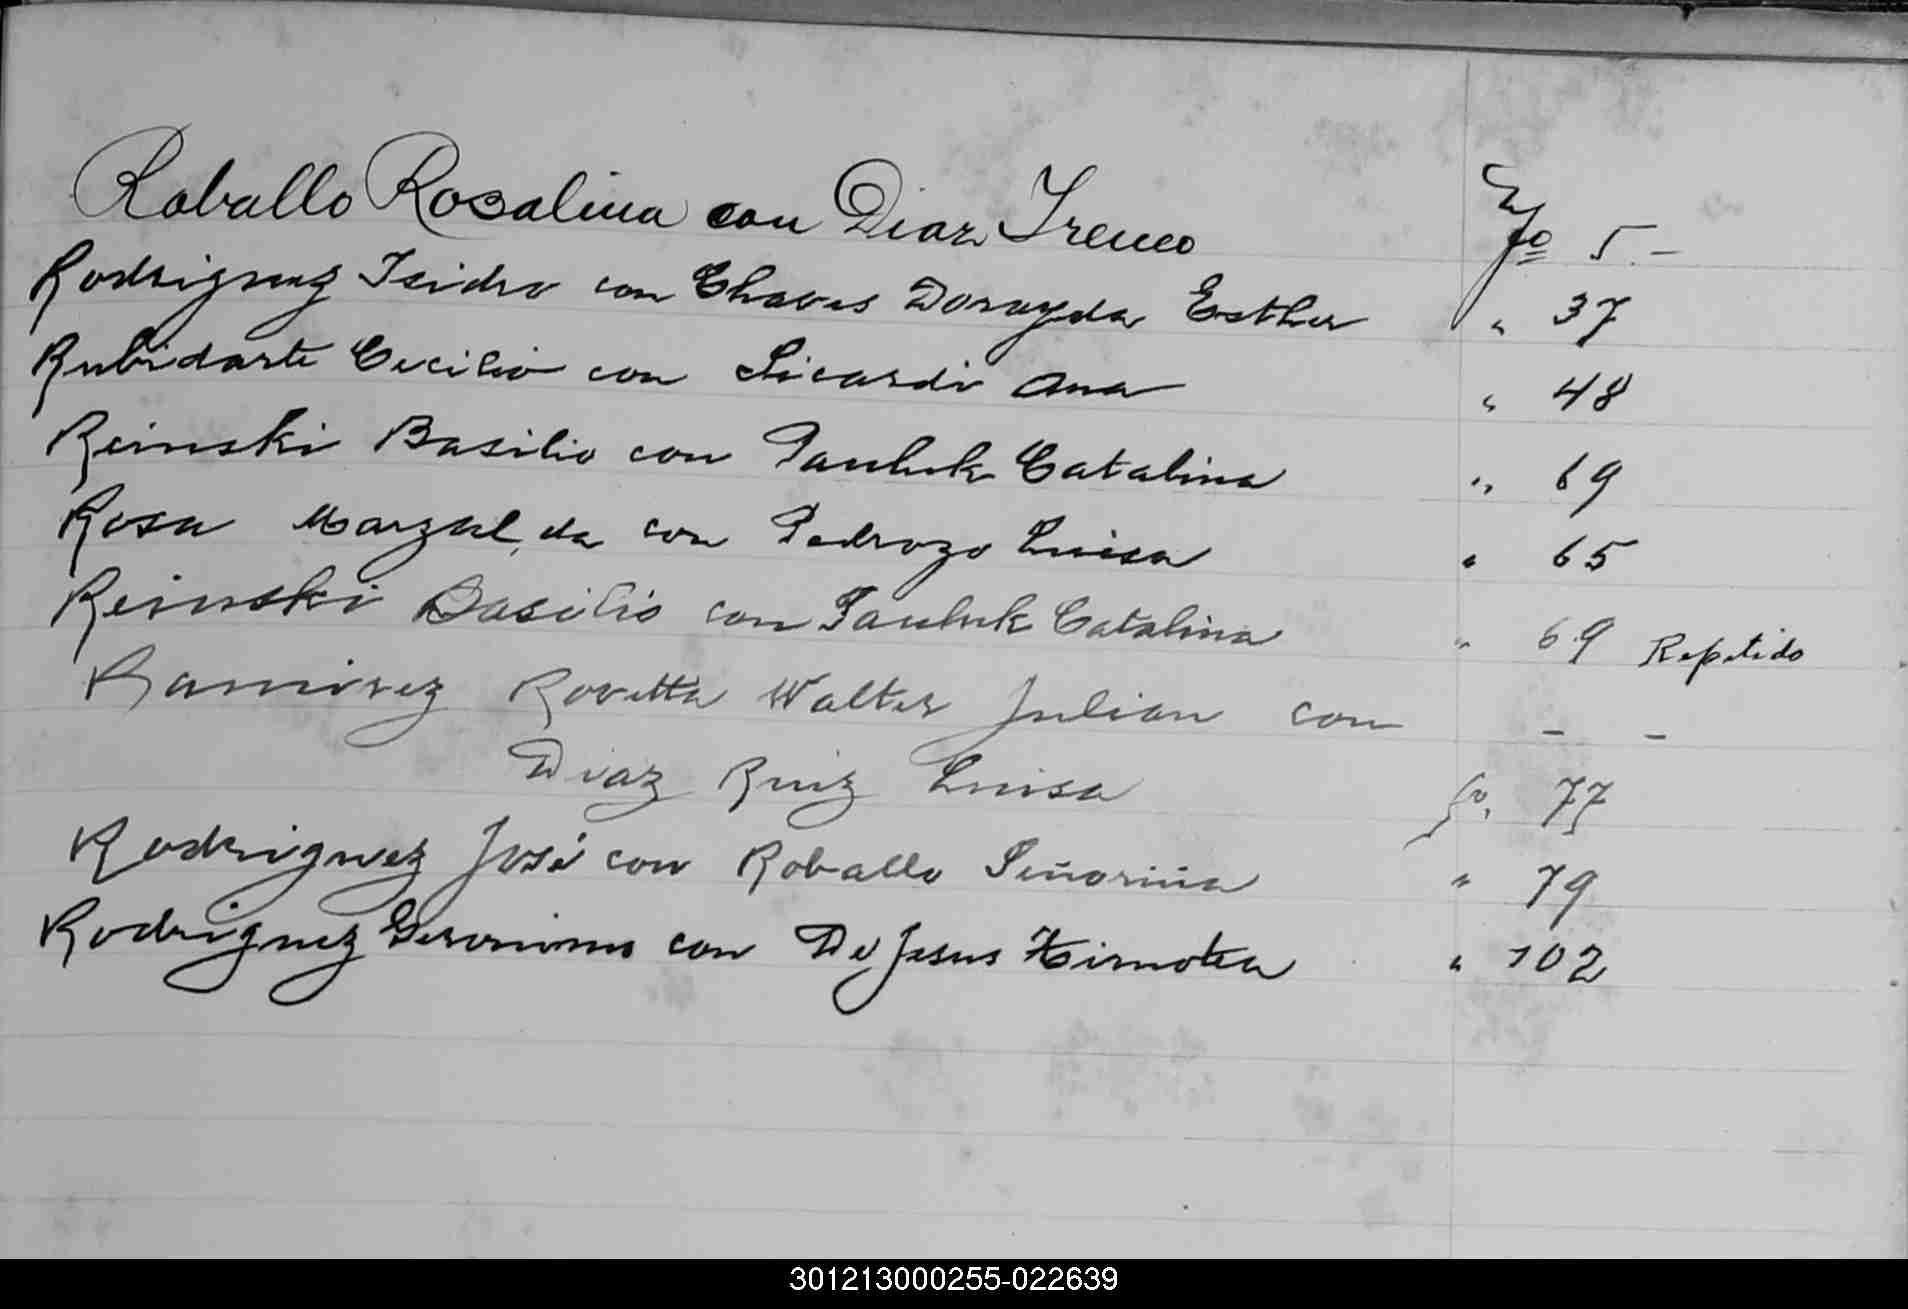 Roballo Rosalina con Diaz Ireneo fo 5.-
Rodriguez Isidro con Chaves Dorayda Esther " 37
Rubidarte Cecilio con Licardi Ana " 48
Reinski Basilio con Pauluk Catalina " 69
Rosa Marzal, da con Pedrozo Luisa " 65
Reinski Basilio con Pauluk Catalina " 69 Repetido
Ramirez Rovetta Walter Julian con - -
Diaz Ruiz Luisa fo. 77
Rodriguez José con Roballo Señoriña " 79
Rodriguez Geronimo con De Jesus Timotea " 102
301213000255-022639